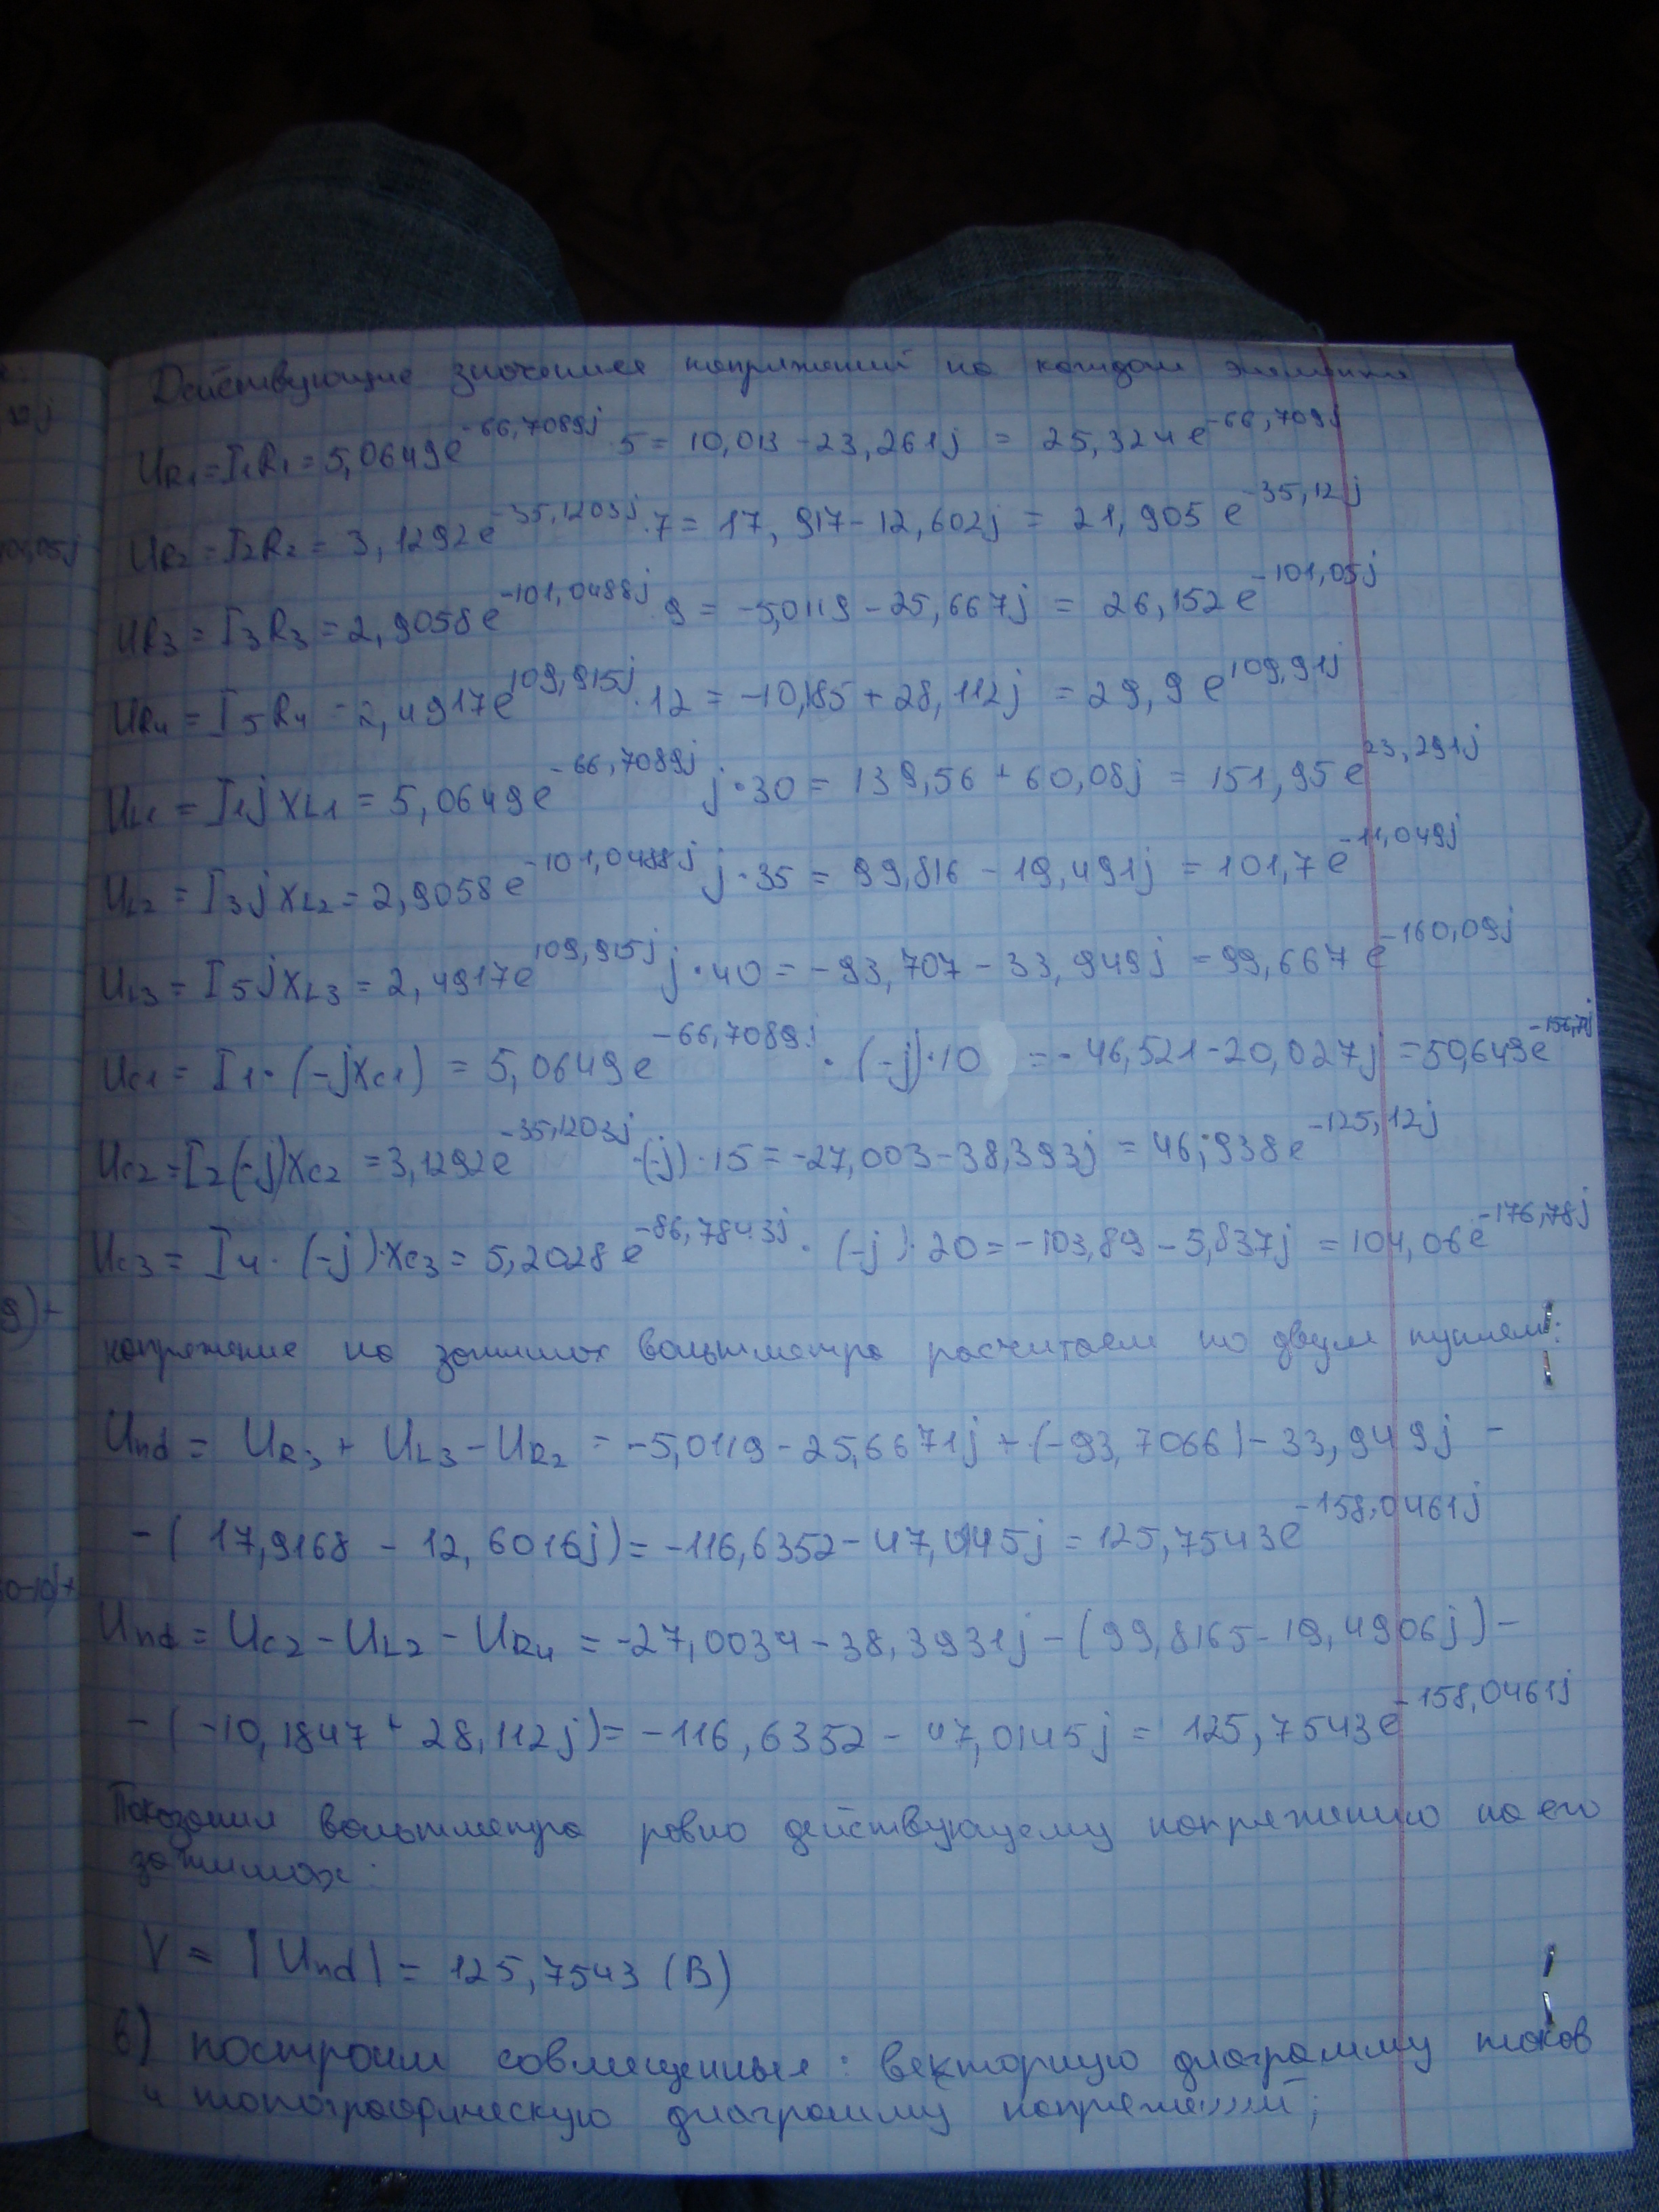 Действующие значения напряжений на каждом элементе
UR1 = I1R1 = 5,0649e^-66,7089j · 5 = 10,013 - 23,261j = 25,324e^-66,709j
UR2 = I2R2 = 3,1292e^-35,1203j · 7 = 17,917 - 12,602j = 21,905e^-35,12j
UR3 = I3R3 = 2,9058e^-101,0488j 9 = -5,0119 - 25,667j = 26,152e^-101,05j
UR4 = I5R4 = 2,4917e^109,915j · 12 = -10,185 + 28,112j = 29,9e^109,91j
UL1 = I1jXL1 = 5,0649e^-66,7089j j·30 = 139,56 + 60,08j = 151,95e^23,291j
UL2 = I3jXL2 = 2,9058e^-101,0488j j·35 = 99,816 - 19,491j = 101,7e^-11,049j
UL3 = I5jXL3 = 2,4917e^109,915j j·40 = -93,707 - 33,949j = 99,667e^-160,09j
UC1 = I1·(-jXC1) = 5,0649e^-66,7089j · (-j)·10 = -46,521 - 20,027j = 50,649e^-156,71j
UC2 = I2(-j)XC2 = 3,1292e^-35,1203j ·(-j)·15 = -27,003 - 38,393j = 46,938e^-125,12j
UC3 = I4·(-j)·XC3 = 5,2028e^-86,7843j · (-j)·20 = -103,89 - 5,837j = 104,06e^-176,78j
напряжение на зажимах вольтметра расчитаем по двум путям:
Und = UR3 + UL3 - UR2 = -5,0119 - 25,6671j + (-93,7066) - 33,949j -
- (17,9168 - 12,6016j) = -116,6352 - 47,0145j = 125,7543e^-158,0461j
Und = UC2 - UL2 - UR4 = -27,0034 - 38,3931j - (99,8165 - 19,4906j) -
- (-10,1847 + 28,112j) = -116,6352 - 47,0145j = 125,7543e^-158,0461j
Показания вольтметра равно действующему напряжению на его
зажимах:
V = |Und| = 125,7543 (В)
6) построим совмещенные: векторную диаграмму токов
и топографическую диаграмму напряжений;
9)-
0-10j+